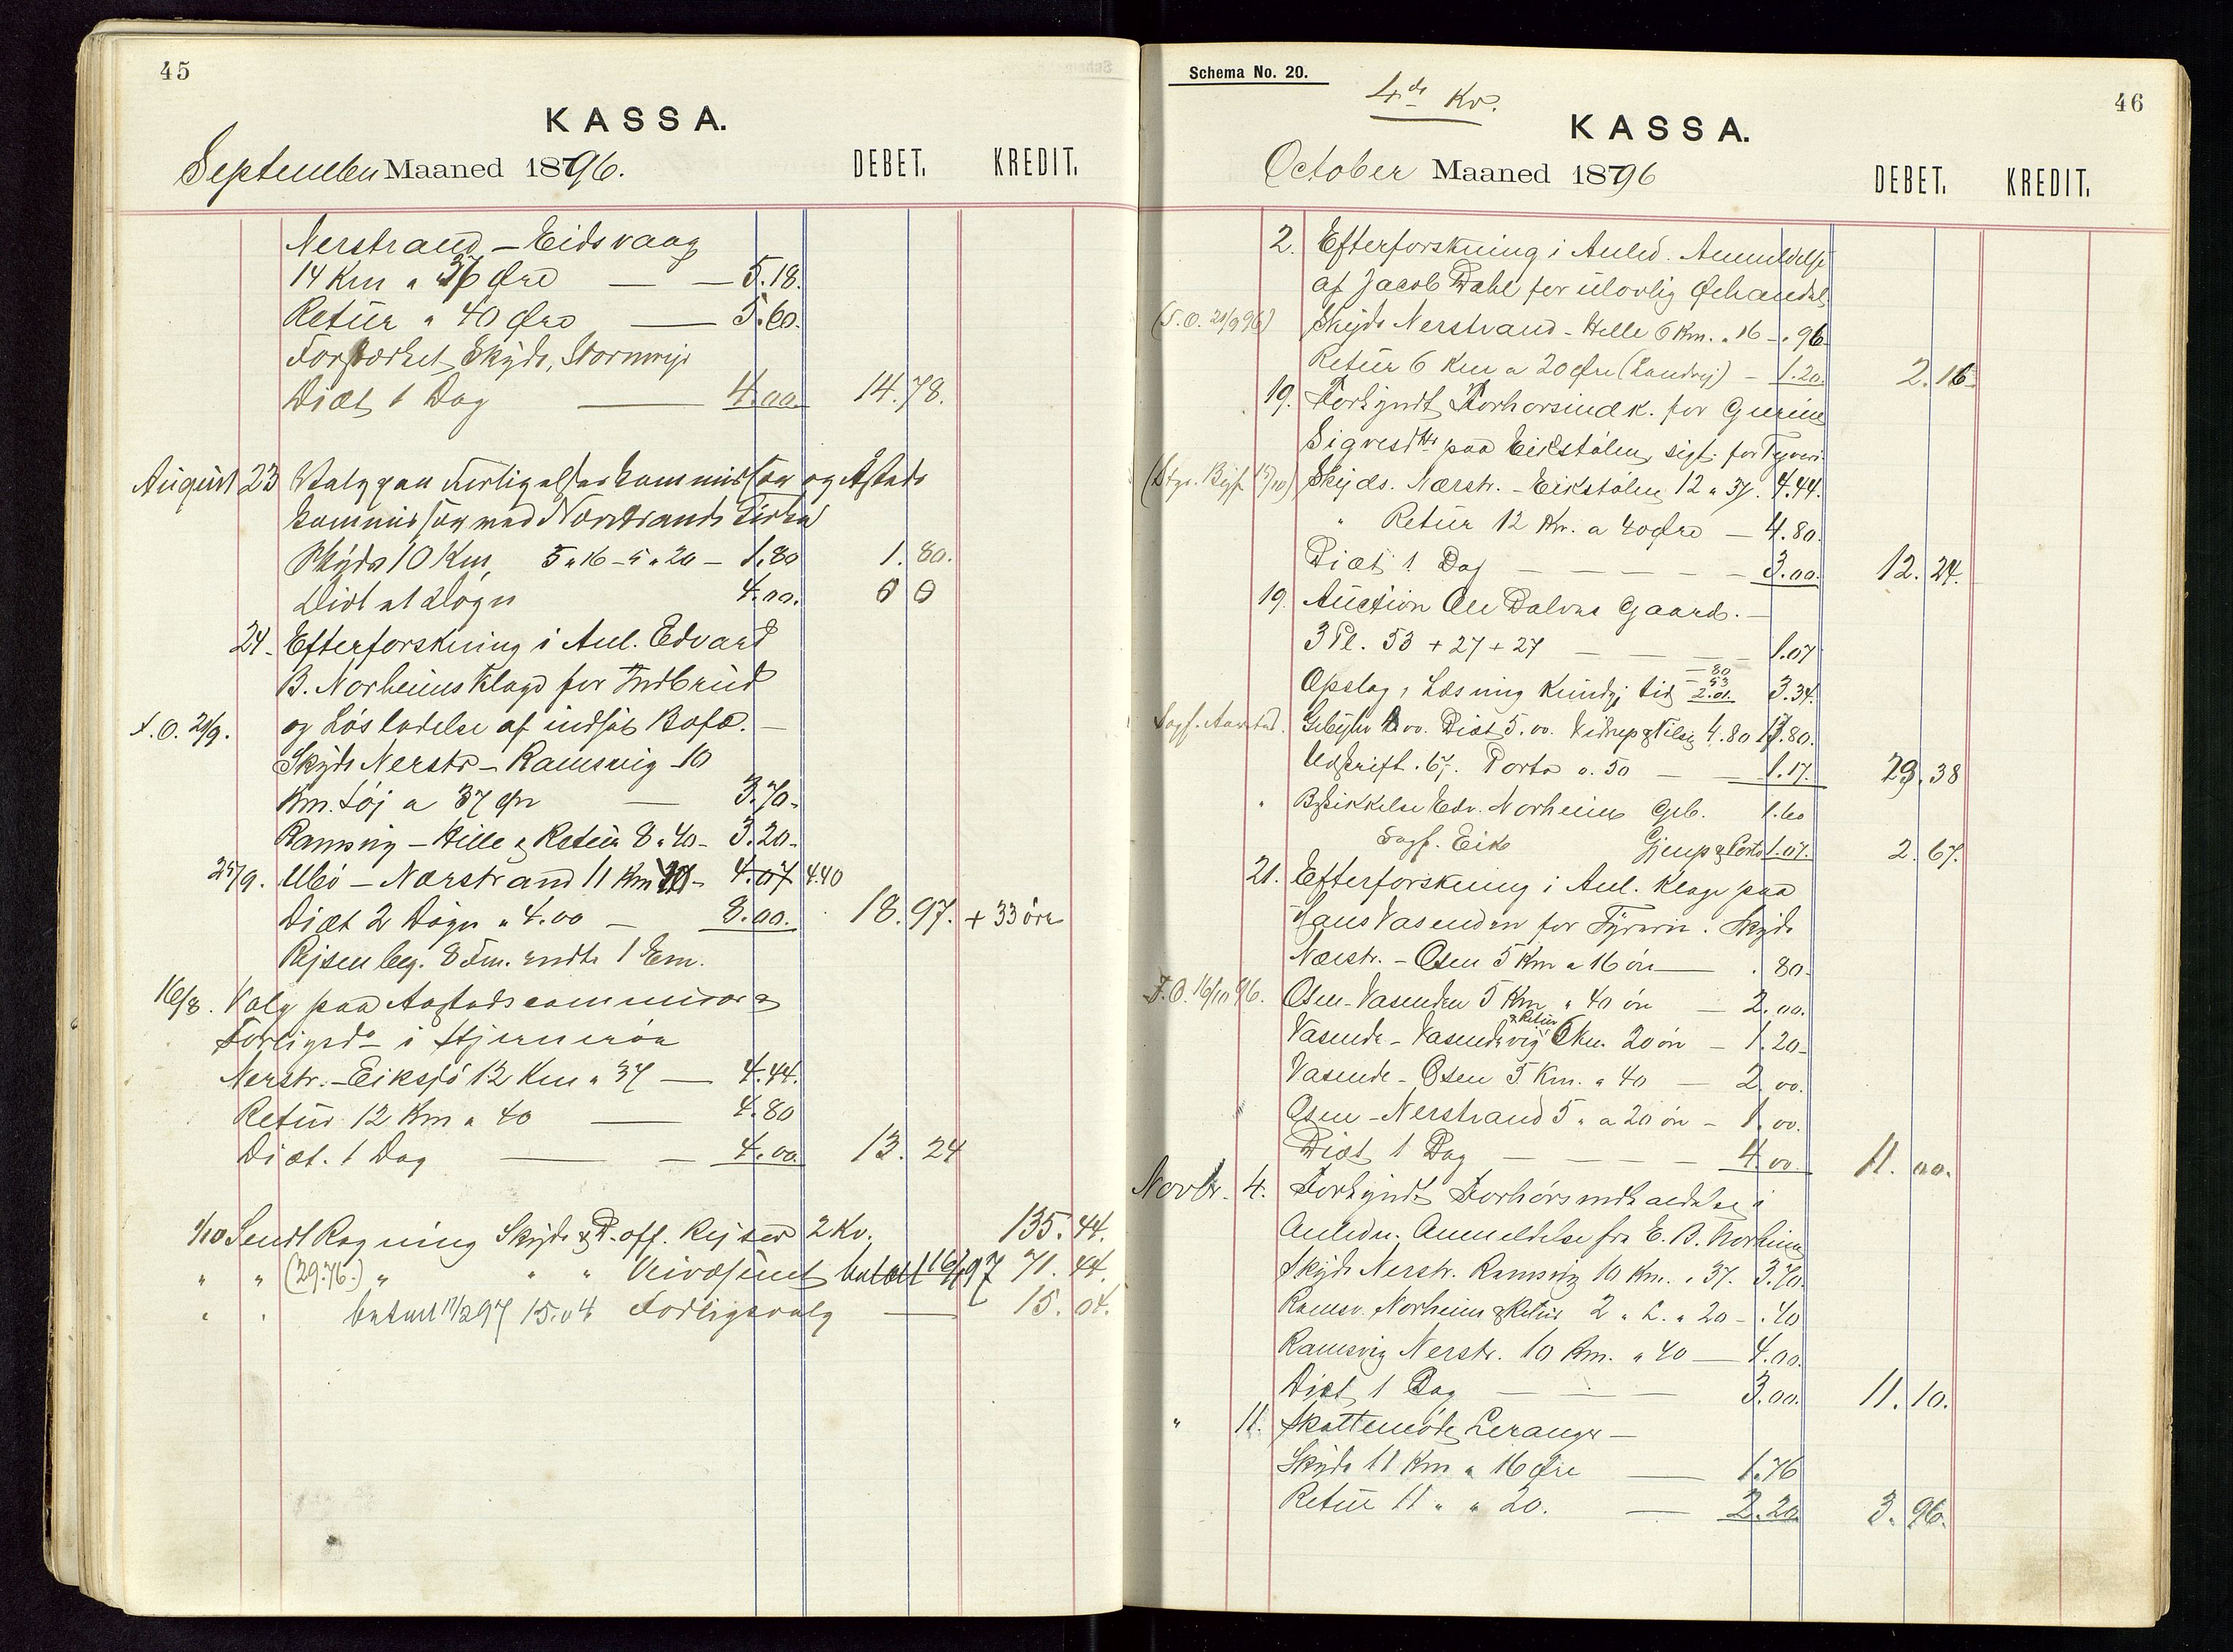 45
KASSA.
September Maaned 1896.
DEBET. KREDIT.
Nerstrand – Eidsvaag
14 Km a 37 Øre — — 5.18.
Retür a 40 Øre — 5.60.
Forstærket Skyds,
Diæt 1 Dag — 4.00. 14.78.
August 23 Valg paa og Astads
kommission ved Nærstrands Tirkel
Skyds 10 Km, 5 a 16 – 5 a 20 – 1.80 1.80.
Diæt et Døgn 4.00. 0 0
24. Efterforskning i Anl. Edvard
B. Norheims Klage for Indbrud
F.O. 21/9. og Løsladelse af indsat –
Skyds Nerstr – Ramsvig 10
Km. Løj a 37 Øre — 3.70.
Ramsvig – Hille & Retur 8 a 40 – 3.20.
25/9. – Nærstrand 11 Km – 4.07 4.40
Diæt 2 Døgn a 4.00 – 8.00. 18.97. + 33 øre
Rejsen beg. 8 Fm. endte 1 Em.
16/8. Valg paa Aastadscommission &
Forligsdo i Stjernerøe
Nerstr. – Eiksjø 12 Km a 37 — 4.44.
Retur 12 Km a 40 — 4.80
Diæt. 1 Dag — – 4.00. 13.24
1/10 Sendt Regning Skyds & D. off. Rejser 2 Kv. 135.44.
" " (29.76.) " " " betalt 16/1 97 71.44.
" " betalt 17/2 97 15.04 Forligsvalg — 15.04.
Schema No. 20.
4de Kv.
46
KASSA.
October Maaned 1896
DEBET. KREDIT.
2. Efterforskning i Anled. Anmeldelse
af Jacob Dahl for ulovlig Ølhandel,
(F.O. 21/9 96) Skyds Nerstrand – Helle 6 Km. a 16 – .96
Retür 6 Km a 20 Øre (Landvej) – 1.20. 2.16
19. Forkyndt Forhørsindk. for Gurine
Sigvesdtr paa Eikstølen, sigt. for Tyveri
(15/10) Skyds. Nærstr. – Eikstølen 12 a 37. 4.44.
" Retür 12 Km. a 40 Øre – 4.80.
Diæt 1 Dag — — — 3.00. 12.24.
19. Auction Ole Dalvas Gaard. –
3 Pl. 53 + 27 + 27 — — – 1.07
– 80
– 53
Opslag, Læsning Kundgj. tid 2.01. 3.34.
Sagf. Aarstad. Gebyhr .00. Diæt 5.00. 4.80 .80.
Udskrift .67. Porto 0.50 — — 1.17. 29.38
" Beskikkelse Edv. Norheim Geb. 1.60
Sagf. Eike Gjenp & Porto 1.07. 2.67.
21. Efterforskning i Anl. Klage paa
Hans Vasenden for Tyveri. Skyds
Nerstr. – Osen 5 Km a 16 øre — .80.
F.O. 16/10 96. Osen – Vasenden 5 Km a 40 øre – 2.00.
& Retur
Vasende – Vasendevig 6 Km. 20 øre – 1.20.
Vasende – Osen 5 Km. a 40 — 2.00.
Osen – Nerstrand 5 " a 20 øre – 1.00.
Diæt 1 Dag — — — 4.00. 11.00.
Novbr. 4. Forkyndt i
Anledn. Anmeldelse fra E. B. Norheim
Skyds Nerstr. Ramsvig 10 Km. a 37. 3.70.
Ramsv. Norheim & Retur 2 " L. a 20 – .40
Ramsvig Nerstr. 10 Km. a 40 — 4.00.
Diæt 1 Dag — — — 3.00. 11.10.
" 11. Skattemøde Leranger –
Skyds 11 Km a 16 Øre — 1.76
Retur 11 " a 20. — 2.20. 3.96.